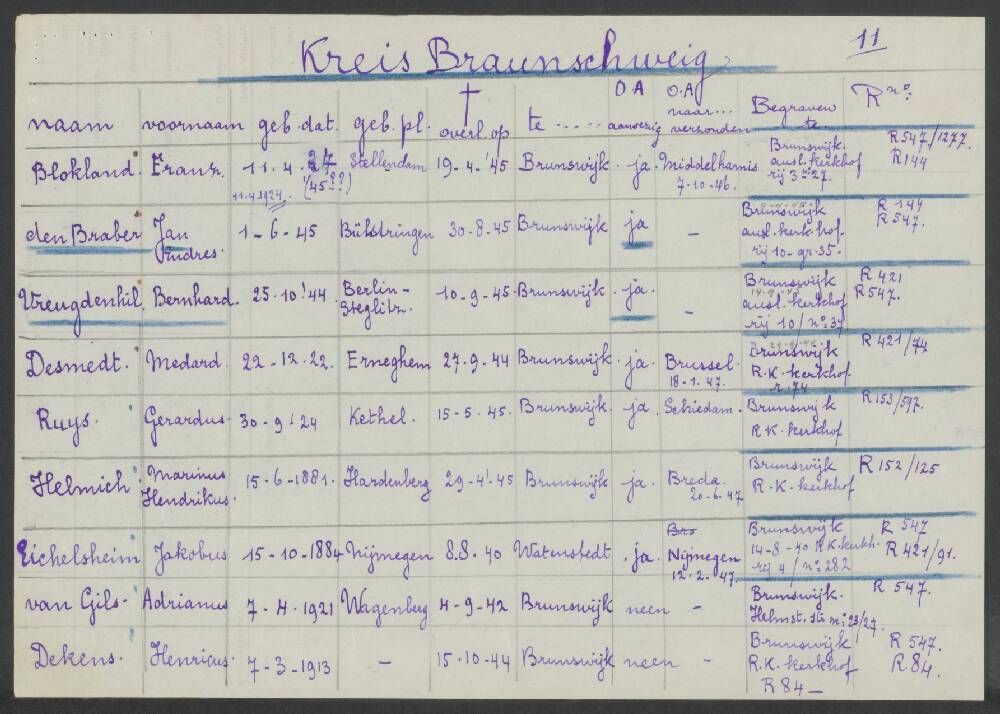 11
Kreis Braunschweig
naam voornaam geb. dat. geb. pl. † overl. op te ..... O A aanwezig O.A naar... verzonden Begraven te R no:
Blokland. Frans. 11.4.24 Stellendam 19-4-'45 Brunswijk ja. Middelharnis Brunswijk. R547/1277.
(45??) 7-10-46. ausl. kerkhof R144
11.4.1924 rij 3 no: 27.
den Braber Jan 1-6-45 Bülstringen 30-8-45 Brunswijk ja - Brunswijk R 144
Andres. ausl. kerkhof- R547.
rij 10-gr. 35.
Vreugdenhil. Bernhard. 25.10.'44 Berlin- 10-9-45. Brunswijk. ja. - Brunswijk R421
Steglitz. ausl. kerkhof R547.
rij 10/no: 37
Desmedt. Medard. 22-12.22. Erneghem 27-9-44 Brunswijk. ja. Brussel. Brunswijk R421/74
18-1.47. R.K. kerkhof
r. 74
Ruys. Gerardus. 30-9-'24 Kethel. 15-5-45. Brunswijk. ja. Schiedam. Brunswijk R153/597.
R.K. kerkhof
Helmich Marinus 15-6-1881. Hardenberg 29-4'-45 Brunswijk. ja. Breda. Brunswijk R152/125
Hendrikus. 20-6.47. R.K. kerkhof
Bre
Eichelsheim Jakobus 15-10-1884 Nijmegen 8.8-40 Watenstedt . ja. Nijmegen Brunswijk R 547
12.2-47. 14-8-40 R.K. kerkh. R421/91.
rij 4/no: 282
van Gils. Adrianus 7-4.1921 Wagenberg 4-9-42 Brunswijk neen - Brunswijk. R 547.
Helmst. str no: 23/27.
Dekens. Henricus. 7-3-1913 - 15.10-44 Brunswijk neen - Brunswijk R547.
R.K. kerkhof R84.
R84-